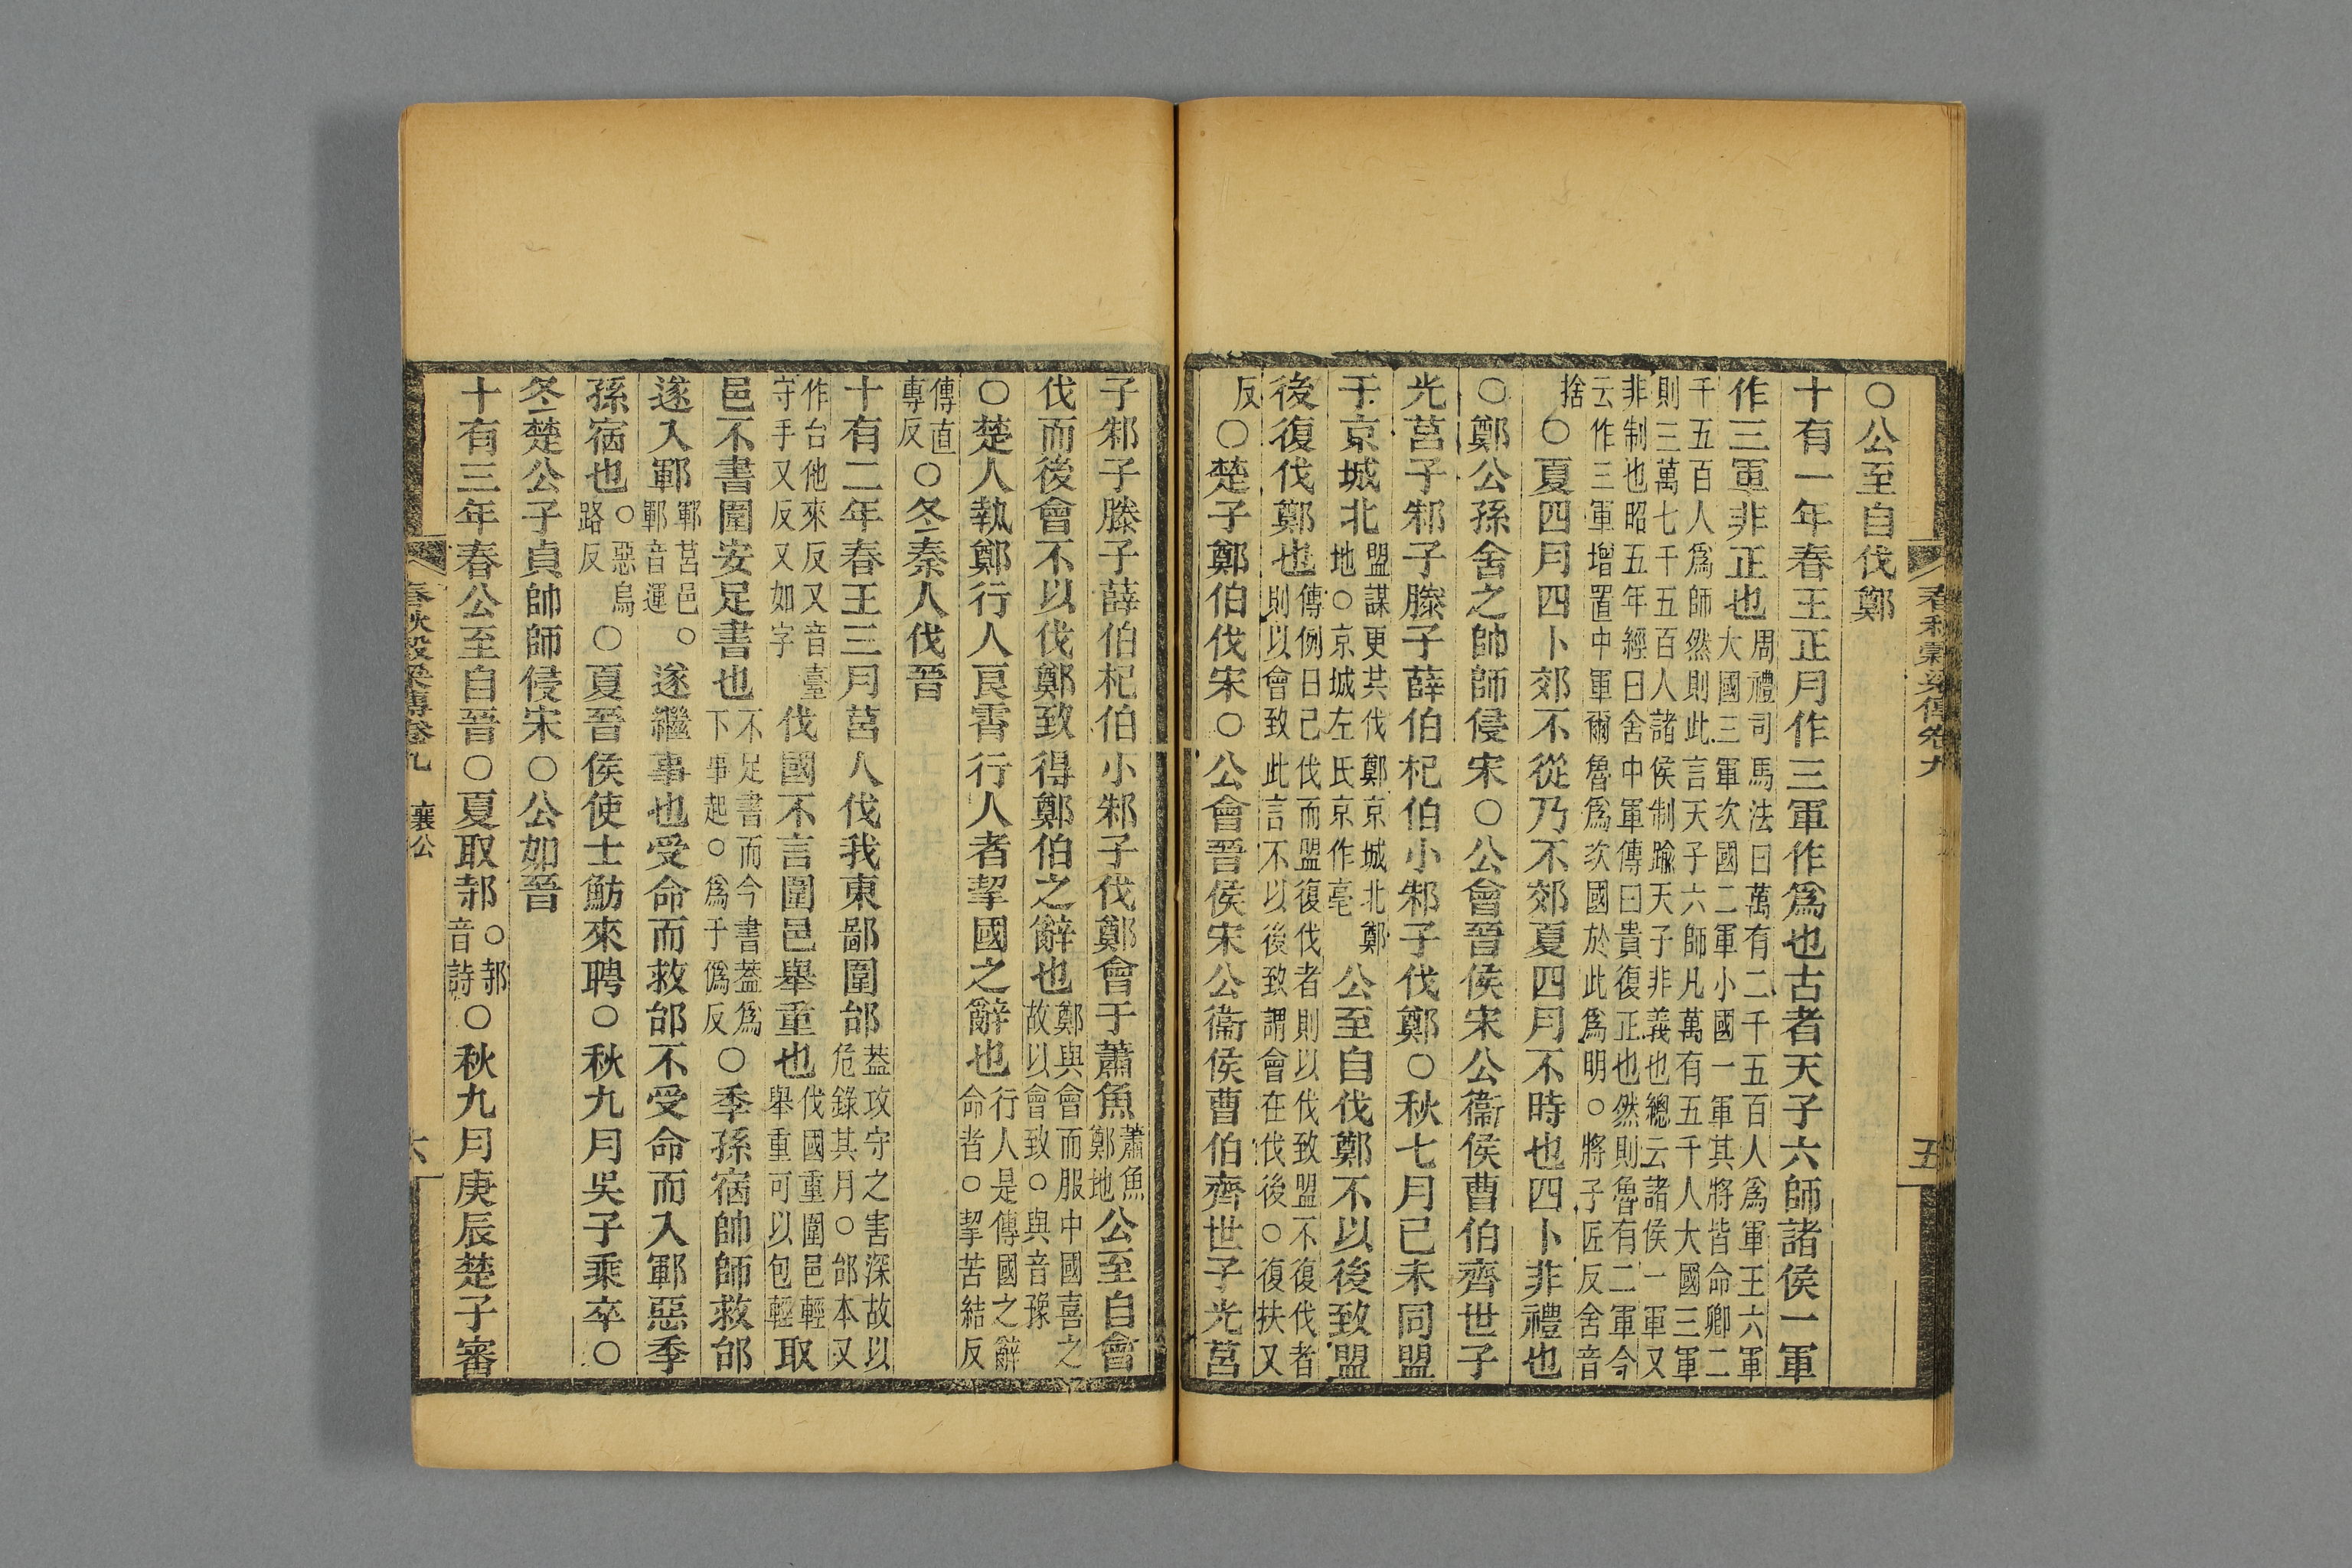 春秋穀梁傳卷九
五
○公至自伐鄭
十有一年春王正月作三軍作爲也古者天子六師諸侯一軍
作三軍非正也
周禮司馬法曰萬有二千五百人爲軍王六軍
大國三軍次國二軍小國一軍其將皆命卿二
千五百人爲師然則此言天子六師凡萬有五千人大國三軍
則三萬七千五百人諸侯制踰天子非義也總云諸侯一軍又
非制也昭五年經曰舍中軍傳曰貴復正也然則魯有二軍今
云作三軍增置中軍爾魯爲次國於此爲明○將子匠反舍音
捨
○夏四月四卜郊不從乃不郊夏四月不時也四卜非禮也
○鄭公孫舍之帥師侵宋○公會晉侯宋公衞侯曹伯齊世子
光莒子邾子滕子薛伯杞伯小邾子伐鄭○秋七月己未同盟
于京城北
盟謀更其伐鄭京城北鄭
地○京城左氏京作亳
公至自伐鄭不以後致盟
後復伐鄭也
傳例曰已伐而盟復伐者則以伐致盟不復伐者
則以會致此言不以後致謂會在伐後○復扶又
反
○楚子鄭伯伐宋○公會晉侯宋公衞侯曹伯齊世子光莒
子邾子滕子薛伯杞伯小邾子伐鄭會于蕭魚
蕭魚
鄭地
公至自會
伐而後會不以伐鄭致得鄭伯之辭也
鄭與會而服中國喜之
故以會致○與音豫
○楚人執鄭行人良霄行人者挈國之辭也
行人是傳國之辭
命者○挈苦結反
傳直
專反
○冬秦人伐晉
十有二年春王三月莒人伐我東鄙圍邰
葢攻守之害深故以
危錄其月○邰本又
作台他來反又音臺
守手又反又如字
伐國不言圍邑舉重也
伐國重圍邑輕
舉重可以包輕
取
邑不書圍安足書也
不足書而今書葢爲
下事起○爲于僞反
○季孫宿帥師救邰
遂入鄆
鄆莒邑○
鄆音運
遂繼事也受命而救邰不受命而入鄆惡季
孫宿也
○惡烏
路反
○夏晉侯使士魴來聘○秋九月吳子乘卒○
冬楚公子貞帥師侵宋○公如晉
十有三年春公至自晉○夏取邿
○邿
音詩
○秋九月庚辰楚子審
春秋穀梁傳卷九 襄公
六